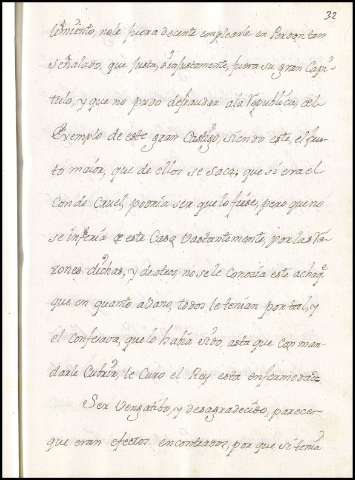 32
no le fuera decente emplearle en Perçona tan
señalada, que justa, o injustamente, fuera su gran Capi-
tulo, y que no puso defraudar ala Republica, del
Exemplo de este gran Castigo, siendo este, el fru-
to maior, que de ellos se saca; que si era el
Conde Cruel, podria ser que lo fuese, pero que no
se inferia de este Caso bastantemente, por las Ra-
zones dichas, y de otras no se le Conocia este achaq.
que en quanto a Vano, todos le tenian por tal, y
el confesava, que lo havia sido, asta que con man-
darle Cubrir, le Curo el Rey esta enfermedad.
Ser Vengatibo, y desagradecido, parece
que eran efectos encontrados, por que si tenia